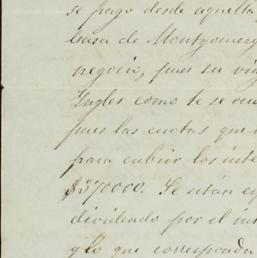 se pago desde aquella
casa de Montgomery
negocio, pues su
Ingles como te se
pues las cuotas que
para cubrir los inte
$370000. Se estan
dividendo por el
y lo que corresponda